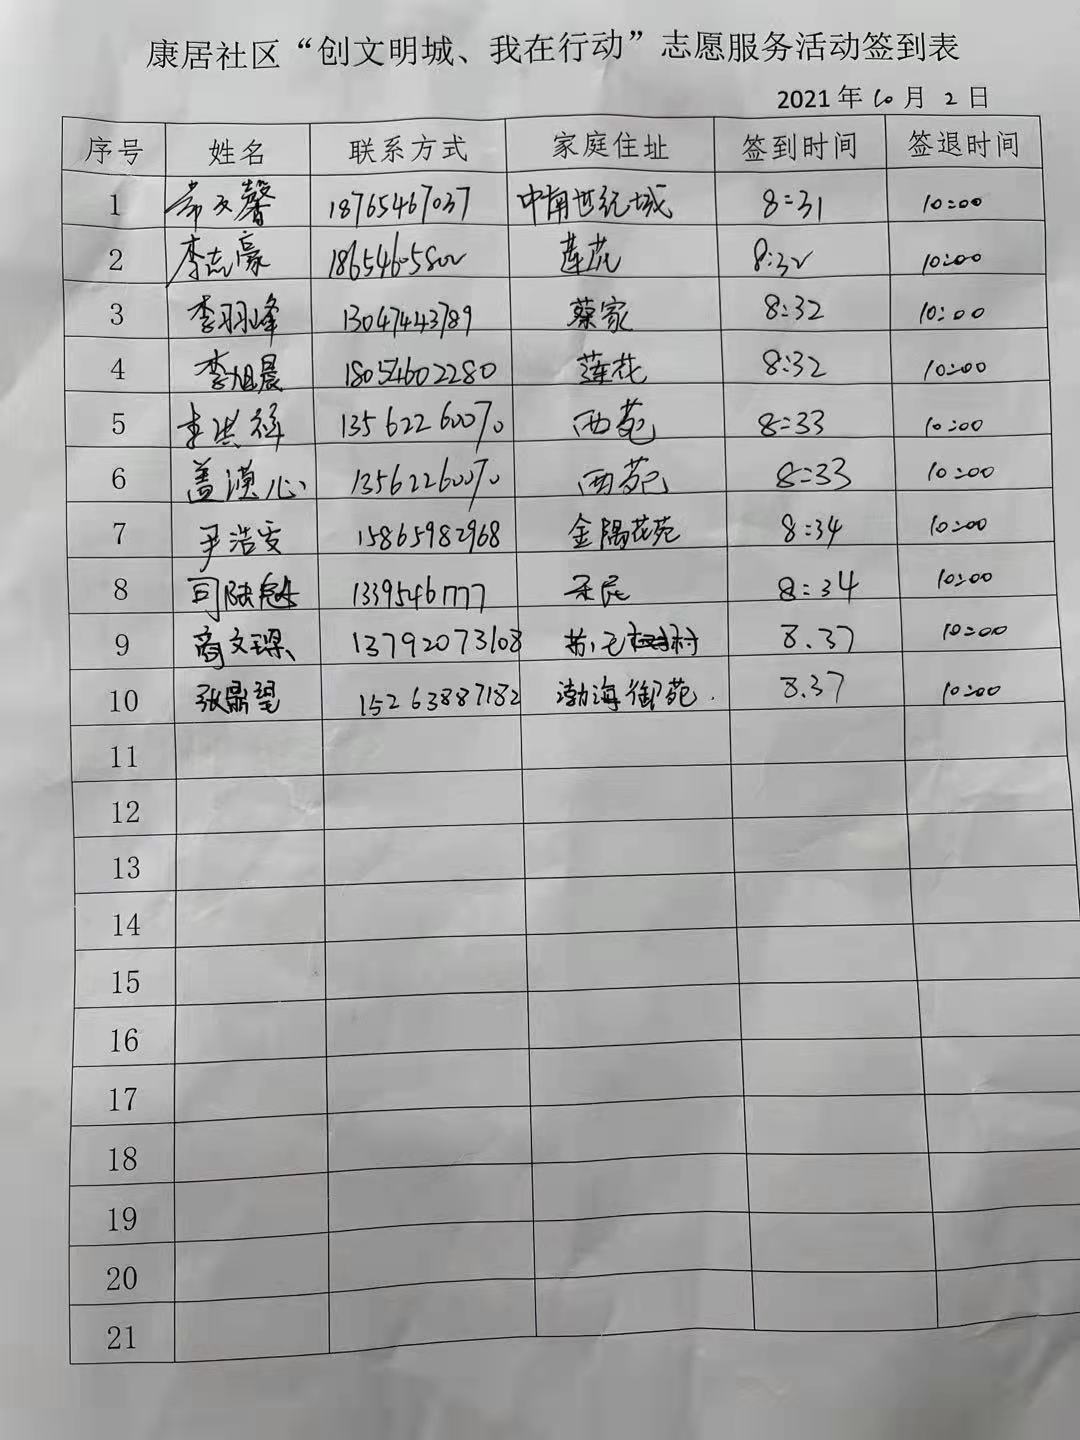 康居社区“创文明城、我在行动”志愿服务活动签到表
2021年10月2日
序号 姓名 联系方式 家庭住址 签到时间 签退时间
1 18765467037 中南世纪城 8:31 10:00
2 李志豪 18654605802 莲花 8:32 10:00
3 李羽峰 13047443789 蔡家 8:32 10:00
4 李旭晨 18054602280 莲花 8:32 10:00
5 李洪 西苑 8:33 10:00
6 盖漠心 西苑 8:33 10:00
7 尹浩 15865982968 金隅花苑 8:34 10:00
8 司 13395461777 8:34 10:00
9 商文琛 13792073108 村 8.37 10:00
10 张鼎望 15263887182 渤海御苑. 8.37 10:00
11
12
13
14
15
16
17
18
19
20
21